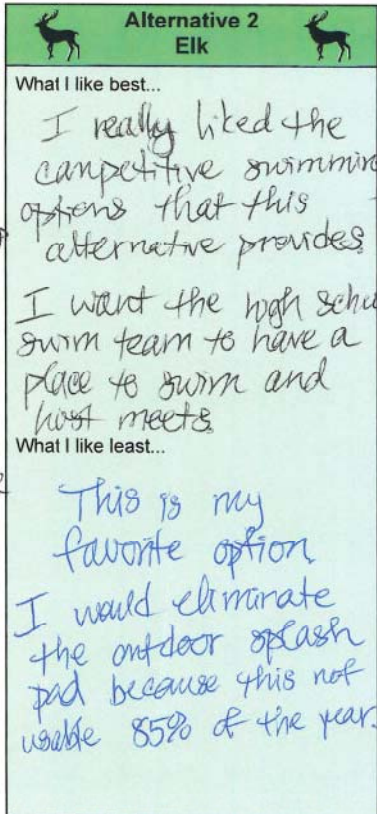 Alternative 2
Elk
What I like best...
I really liked the
competitive swimming
options that this
alternative provides.
I want the high schoo
swim team to have a
place to swim and
host meets.
What I like least...
This is my
favorite option.
I would eliminate
the outdoor splash
pad because this not
usable 85% of the year.